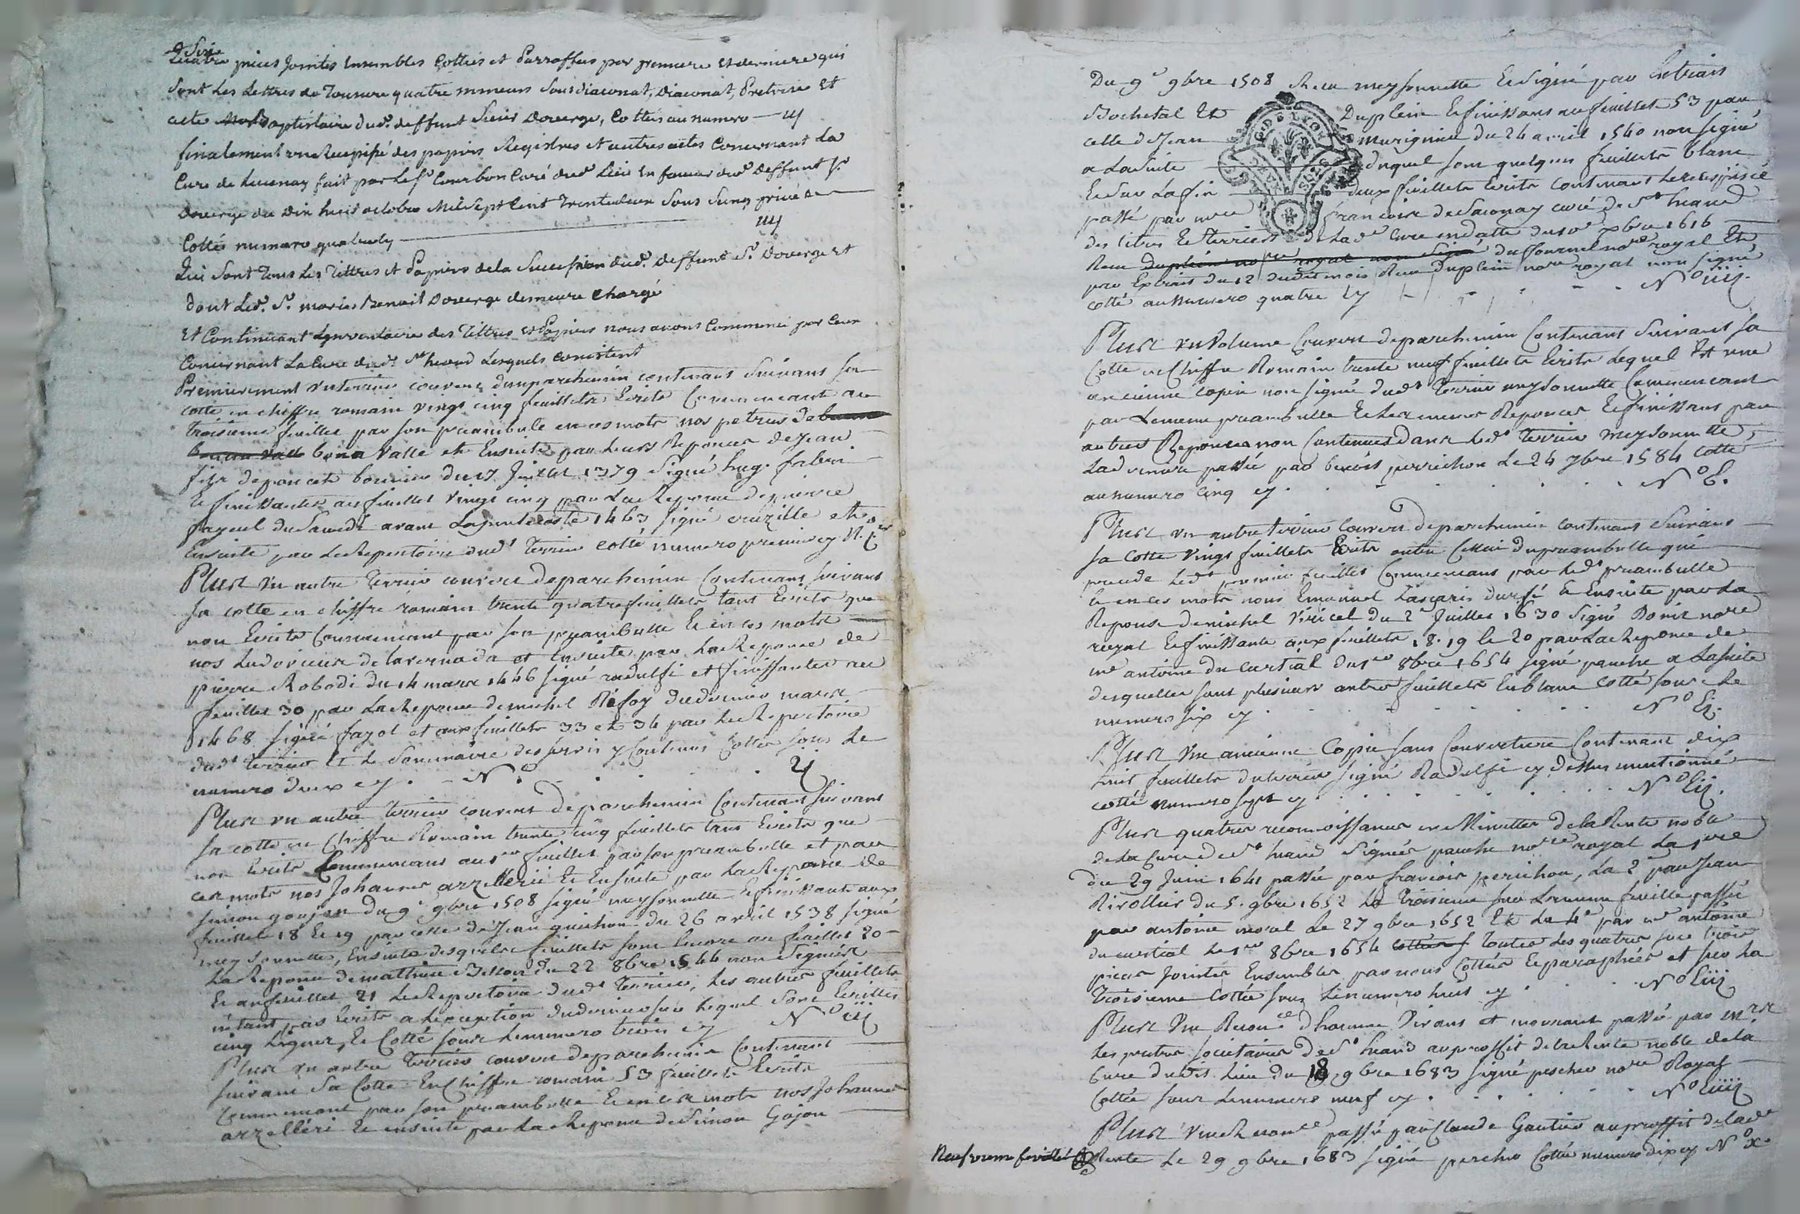 Six
quatre pieces jointes Ensembles Cottées et Parraffées par premiere Et derniere qui
sont Les Lettres de Tonsure quatre mineurs Sousdiaconat, Diaconat, Pretrise Et
acte Baptistaire dud. deffunt Sieur Doverge, Cottées au numero — iij
finalement un Recepissé des papiers Registres et autres actes Concernant La
Cure de Lucenay fait par Le Sr. Courbon Curé dud. Lieu En faveur dud. Deffunt Sr.
Doverge du Dix huit octobre Mil Sept Cent Trente deux Sous Seing privé
Cotté numero quatre iiij
Qui sont Tous Les Tittres et Papiers de la Succession dud. Deffunt Sr. Doverge Et
dont Led. Sr. marie Benoit Doverge demeure Chargé
Et Continuant Linventaire des Tittres et Papiers nous avons Commencé par Ceux
Concernant La Cure dud. St. heand Lesquels Consistent
Premierement un terrier couvert dun parchemin contenant Suivant sa
cotte en chiffre romain vingt cinq feuillets Ecrits Commencant au
troisieme feuillet par son preambule en ces mots nos petrus de
bona Valle et Ensuite par Les Reponces de Jean
fils de poncet du 17 Juillet 1379 Signé hug. fabri
Et finissante au feuillet vingt cinq par La Reponce de pierre
fayeul du Samedi avant La pentecoste 1463 signé cruzille et
Ensuite par Le Repertoire dud. Terrier Cotté numero premier cy N.o 1er
Plus Un autre Terrier couvert de parchemin Contenant suivant
sa cotte en chiffre romain trente quatre feuillets tant Ecrits que
non Ecrits Commencant par son preambulle Et en ces mots
nos Ludovicus de lavernada et Ensuite par La Reponce de
pierre Robodi du 14 mars 1446 signé radulfi et finissantes au
feuillet 30 par La Reponce de michel du dernier mars
1468 signé fayol et aux feuillets 33 et 34 par Le Repertoire
dud. terrier et Le Sommaire des servis y Contenus Cotté sous Le
numero deux cy . - N.o . . . . 2
Plus un autre Terrier couvert de parchemin Contenant Suivant
sa cotte en Chiffre Romain trente cinq feuillets tant Ecrits que
non Ecrits Commencant au 1er feuillet par son preambulle et par
ces mots nos Johannes arzellerii Et Ensuite par La Reponce de
simon goujon du 9e 9bre 1508 signé meysonnette Et finissante aux
feuillets 18 Et 19 par celle de Jean guichon du 26 avril 1538 signé
meysonnette, Ensuite desquels feuillets sont Encore au feuillet 20
La Reponce de mathieu du 22 8bre 1544 non Signée
Et au feuillet 21 Le Repertoire dud. Terrier, Les autres feuillets
netant pas Ecrits a Lexception du dernier sur Lequel sont Ecrittes
cinq Lignes, Et Cotté sous Le numero trois cy N.o iij
Plus un autre Terrier couvert de parchemin Contenant
suivant sa Cotte En Chiffre romain 53 feuillets Ecrits
Commencant par son preambulle Et en ces mots nos Johannes
arzelleri Et ensuite par La Reponce de Simon Gojon
Du 9e 9bre 1508 Recu meysonnette Et Signé par
Bochetal Et Duplein Et finissant au feuillet 53 par
celle de Jean murignieu du 24 avril 1540 non signé
a La suite duquel sont quelques feuillets blanc
Et sur La fin deux feuillets Ecrits contenant Le recepissé
passé par mre françois de Saconay curé de St. heand
des titres Et terriers de Lad. Cure en datte du 10 xbre 1616
Recu duplein nore royal non signé du Journel nore royal Et
par Extrait du 12 dudit mois Recu Duplein nore royal non signé
cotté au numero quatre cy N.o iiij.
Plus un Volume Couvert de parchemin Contenant Suivant sa
Cotte en Chiffre Romain trente neuf feuillets Ecrits Lequel Est une
ancienne Copie non signée dud. Terrier meysonnette Commencant
par Le meme preambulle Et Les memes Reponces Et finissant par
autres Reponces non Contenues dans Led. Terrier meysonnette,
La derniere passée par benoit perrichon Le 24 7bre 1584 Cotté
au numero cinq cy . . . . . N.o 5.
Plus un autre terrier Couvert de parchemin contenant Suivant
sa Cotte vingt feuillets Ecrits outre Celluy du preambulle qui
precede Led. premier feuillet Commencant par Led. preambulle
Et en ces mots nous Emanuel Lascaris durfé Et Ensuite par La
Reponse de michel Viricel du 2e Juillet 1630 Signé Ronie nore
royal Et finissante aux feuillets 18. 19 Et 20 par La Reponce de
mre antoine du curtial du 1er 8bre 1654 signé panche a La suite
desquelles sont plusieurs autres feuillets En blanc Cotté sous Le
numero six cy . . . . . N.o 6.
Plus Une ancienne Copie sans Couverture Contenant dix
huit feuillets du terrier signé Radulfi cy dessus mentionné
cotté numero sept cy . . . . . N.o 7.
Plus quatre reconnoissances en Minuttes de la Rente noble
de La Cure de St. heand signées panche nore royal La 1ere
du 29 Juin 1641 passée par francois perichon, La 2e par Jean
Rivollier du 5. 9bre 1652 La Troisieme sur La meme feuille passée
par antoine morel Le 27 9bre 1652 Et La 4e par mre antoine
du curtial Le 1er 8bre 1654 Toutes Les quatres sur trois
pieces Jointes Ensembles par nous Cottées Et paraphées et sur La
Troisieme Cottée sous Le numero huit cy . . N.o 8
Plus Une Reconce d'homme Vivant et mourant passée par mrs
Les pretres societaires de St. heand au proffit de La Rente noble de la
Cure dudit Lieu du 18. 9bre 1683 signé pescher nore Royal
Cottée sous Le numero neuf cy . . . . . N.o 9
Plus Une Reconce passée par Claude Gautier au proffit de Lad.
Rente Le 29 9bre 1683 signé pescher Cotté numero dix cy N.o x.
Neufvieme feuillet